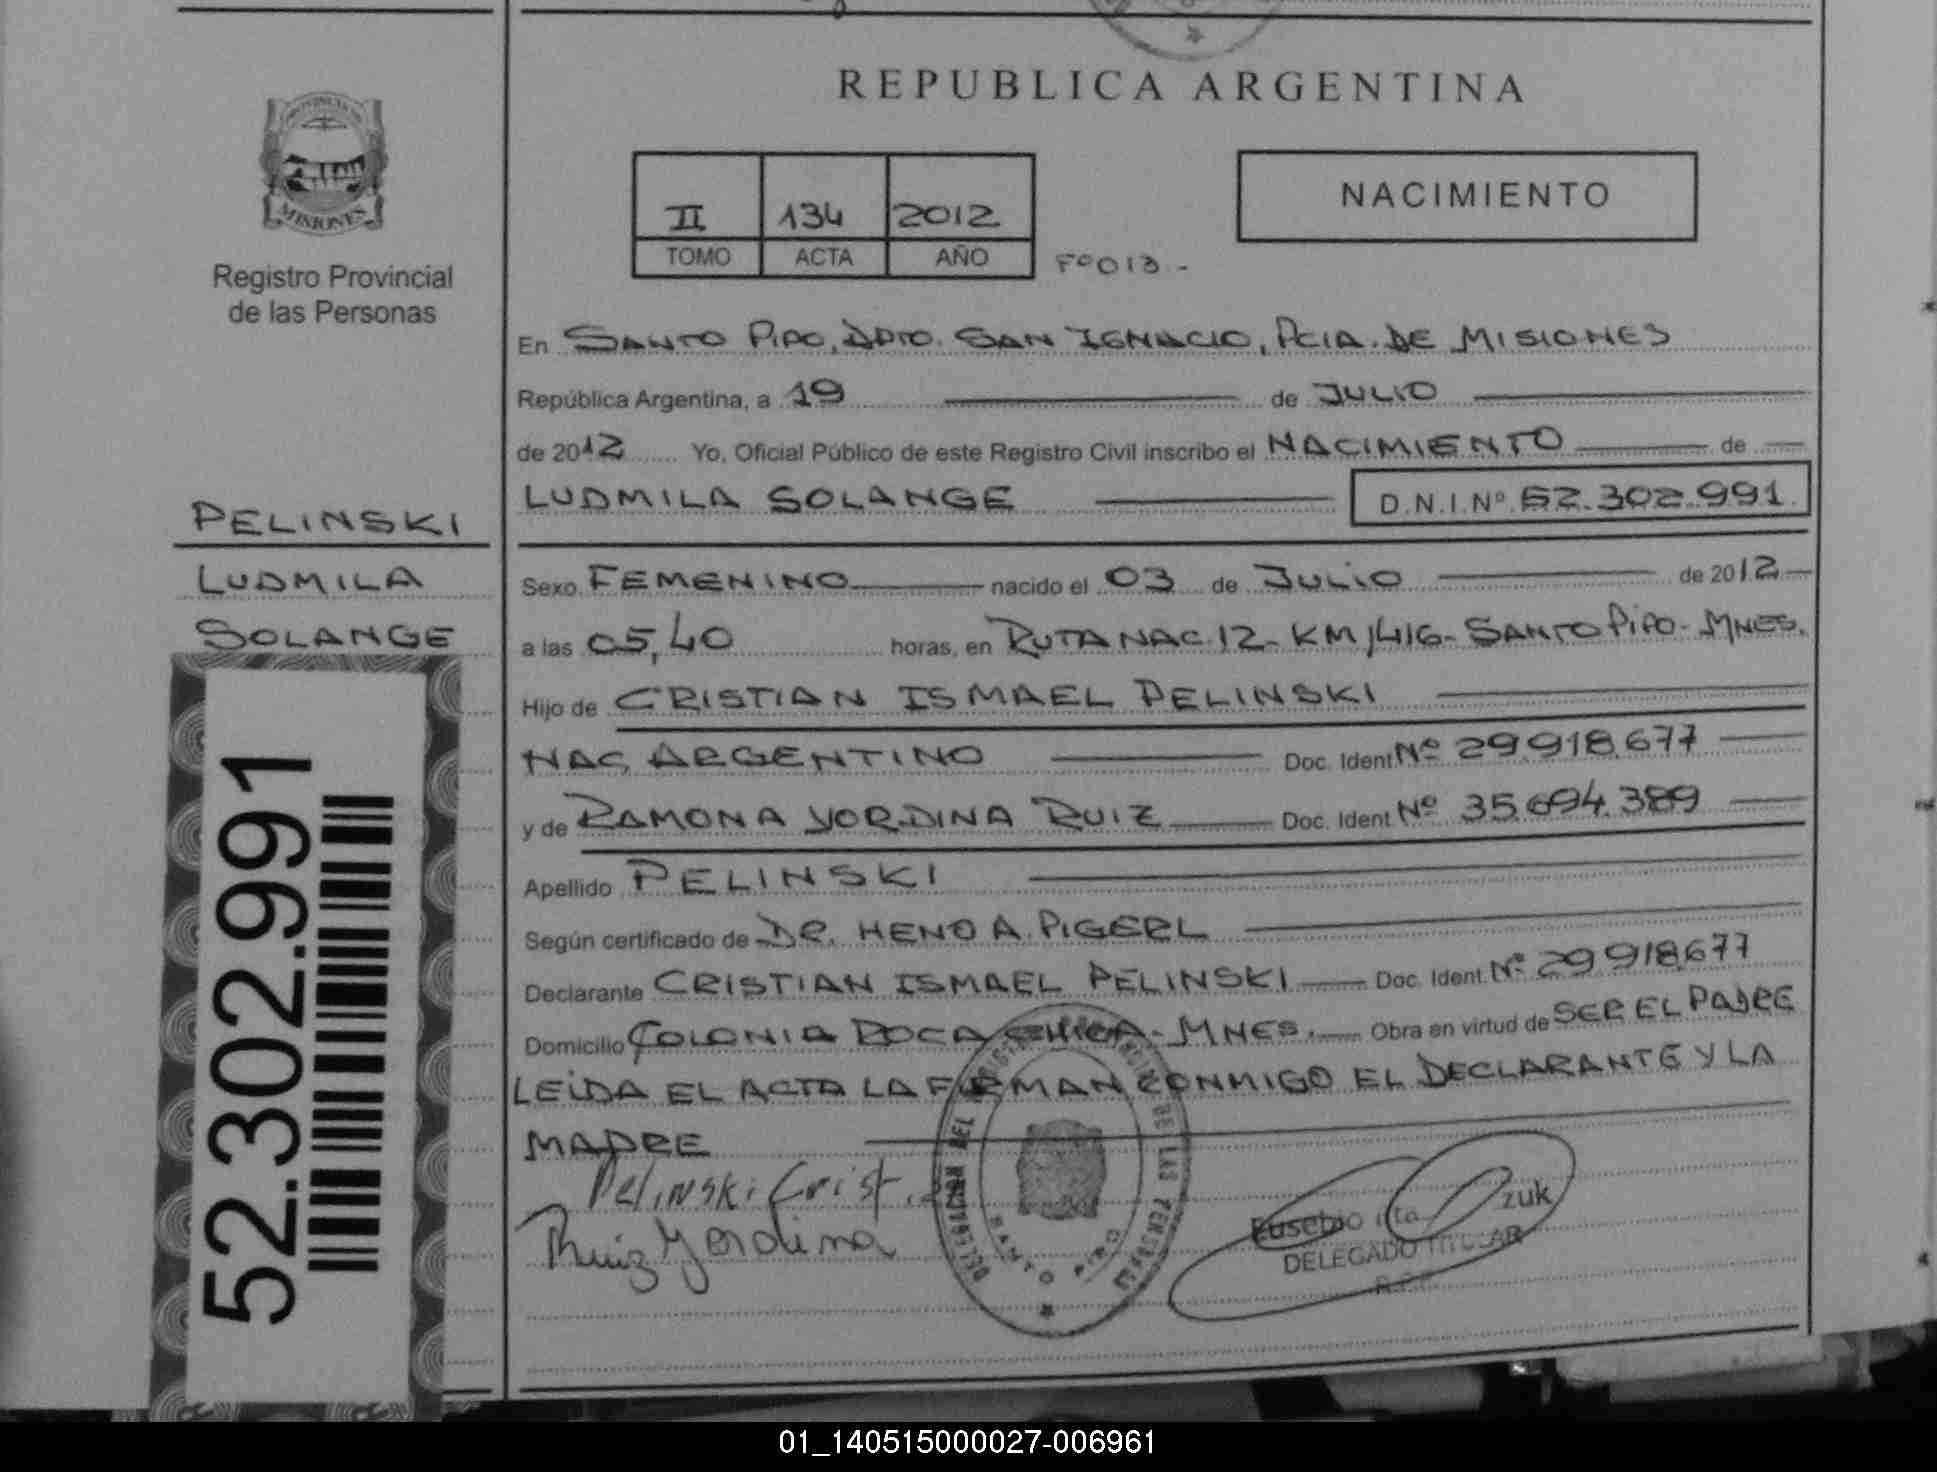 REPUBLICA ARGENTINA
PROVINCIA DE
MISIONES
Registro Provincial
de las Personas
II 134 2012
TOMO ACTA AÑO
Fº 013.-
NACIMIENTO
En SANTO PIPO, DPTO. SAN IGNACIO, PCIA. DE MISIONES
República Argentina, a 19 de JULIO
de 2012 Yo, Oficial Público de este Registro Civil inscribo el NACIMIENTO de
LUDMILA SOLANGE D.N.I.Nº 52.302.991
PELINSKI
LUDMILA
SOLANGE
52.302.991
Sexo FEMENINO nacido el 03 de JULIO de 2012
a las 05,40 horas, en RUTA NAC. 12- KM 1416- SANTO PIPO- MNES.
Hijo de CRISTIAN ISMAEL PELINSKI
NAC. ARGENTINO Doc. Ident Nº 29.918.677
y de RAMONA YORDINA RUIZ Doc. Ident Nº 35.694.389
Apellido PELINSKI
Según certificado de DR. HENO A. PIGERL
Declarante CRISTIAN ISMAEL PELINSKI Doc. Ident. Nº 29 918.677
Domicilio COLONIA ROCA CHICA- MNES. Obra en virtud de SER EL PADRE
LEIDA EL ACTA LA FIRMAN CONMIGO EL DECLARANTE Y LA
MADRE
Pelinski Crist.
Ruiz Yordina
DELEGACION DEL REGISTRO PROVINCIAL DE LAS PERSONAS
SANTO PIPO
Eusebio zuk
DELEGADO TITULAR
R.P.P.
01_140515000027-006961